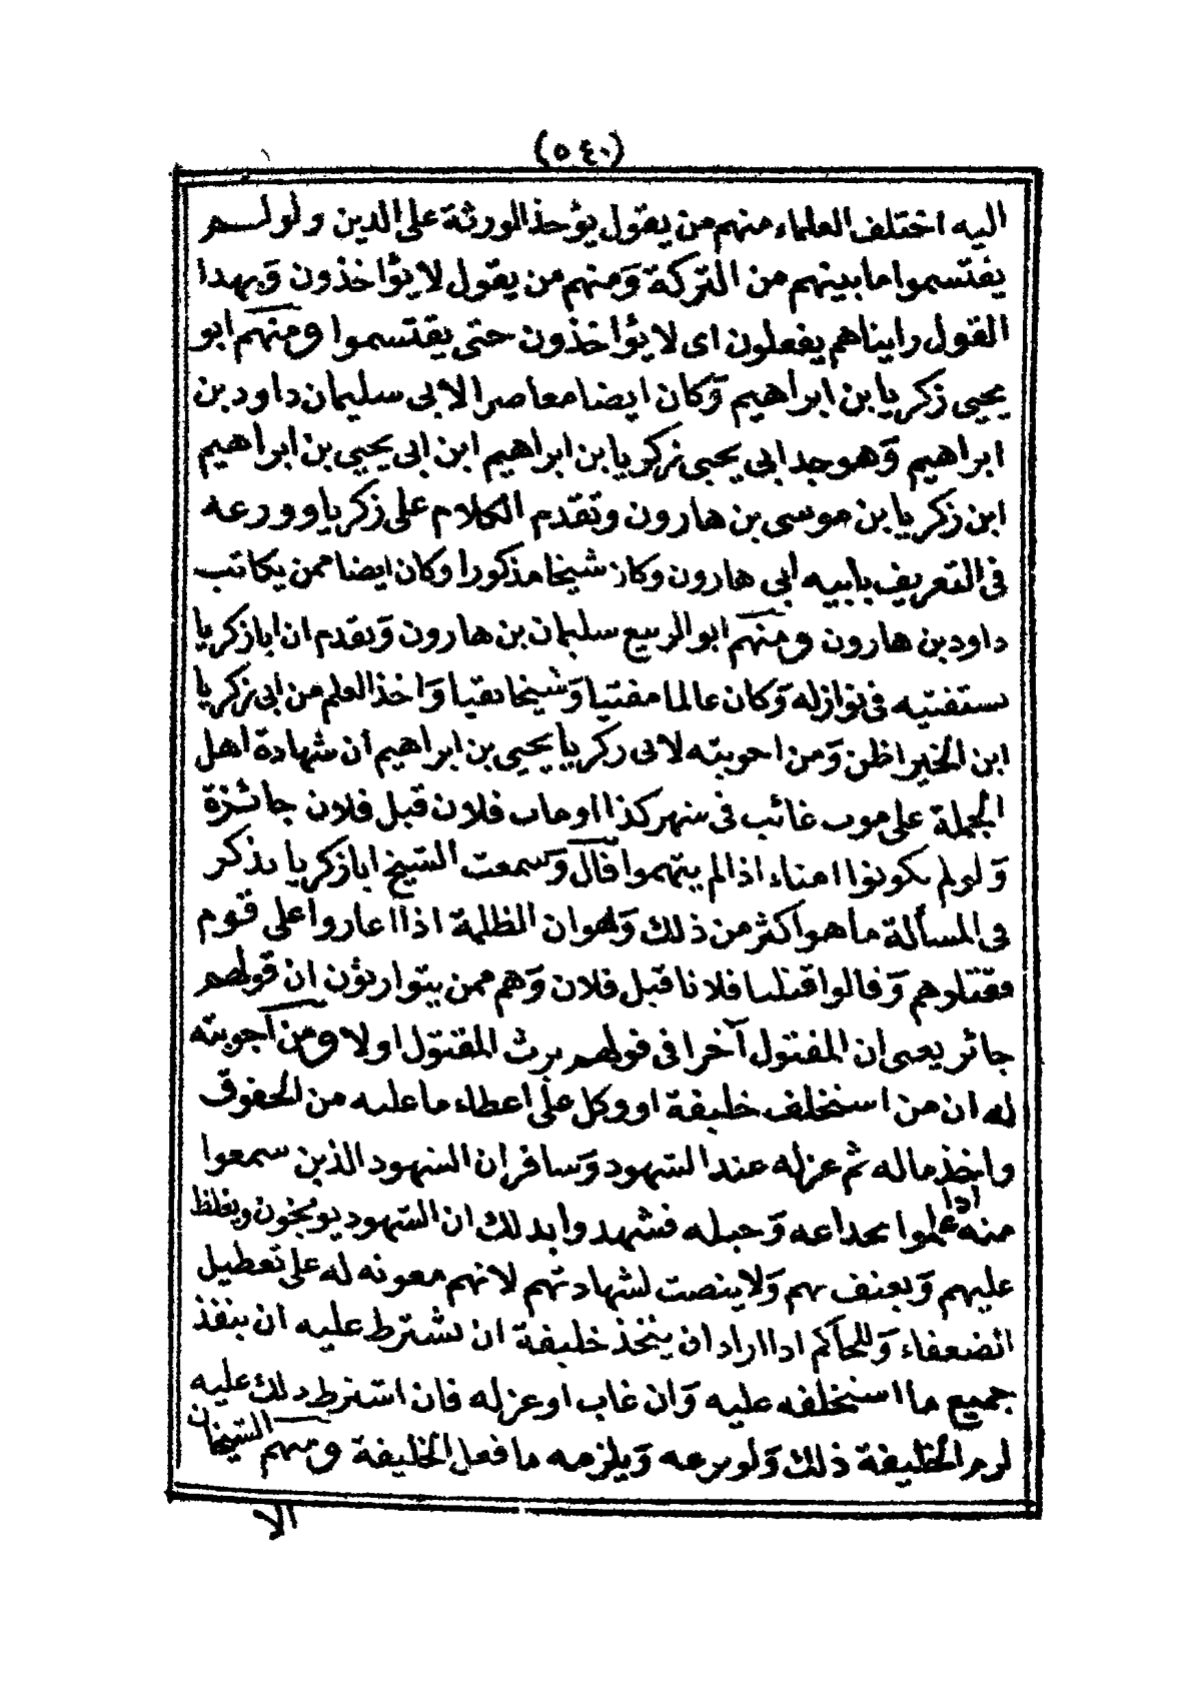 (٥٤٠)
اليه اختلف العلماء منهم من يقول يؤخذ الورثة على الدين ولو لم
يقتسموا ما بينهم من التركة ومنهم من يقول لا يؤاخذون وبهدا
القول راينا هم يفعلون اى لا يؤاخذون حتى يقتسموا ومنهم ابو
يحيى زكريا بن ابراهيم وكان ايضا معاصرا لابى سليمان داود بن
ابراهيم وهو جد ابى يحيى زكريا بن ابراهيم ابن ابى يحيى بن ابراهيم
ابن زكريا بن موسى بن هارون وتقدم الكلام على زكريا وورعه
فى التعريف بابيه ابى هارون وكان شيخا مذكورا وكان ايضا ممن يكاتب
داود بن هارون ومنهم ابو الربيع سليمان بن هارون وتقدم ان ابا زكريا
يستفتيه فى نوازله وكان عالما مفتيا وشيخا تقيا واخذ العلم من ابى زكريا
ابن الخير اظن ومن اجوبته لابى زكريا يحيى بن ابراهيم ان شهادة اهل
الجملة على موت غائب فى شهر كذا او مات فلان قبل فلان جائزة
ولو لم يكونوا امناء اذا لم يتهموا قال وسمعت الشيخ ابا زكريا يذكر
فى المسألة ما هو اكثر من ذلك وهو ان الظلمة اذا اغاروا على قوم
فقتلوهم وقالوا قتلنا فلانا قبل فلان وهم ممن يتوارثون ان قولهم
جائز يعنى ان المقتول آخرا فى قولهم يرث المقتول اولا ومن آجوبته
له ان من استخلف خليفة او وكل على اعطاء ما عليه من الحقوق
واخذ ماله ثم عزله عند الشهود وسافر ان الشهود الذين سمعوا
منه اذا علموا بخداعه وحيله فشهدوا بذلك ان الشهود يوبخون ويغلظ
عليهم ويعنف بهم ولا ينصت لشهادتهم لانهم معونه له على تعطيل
الضعفاء وللحاكم اذا اراد ان يتخذ خليفة ان يشترط عليه ان ينفذ
جميع ما استخلفه عليه وان غاب او عزله فان اشترط ذلك عليه
لزم الخليفة ذلك ولو نزعه ويلزمه ما فعل الخليفة ومنهم الشيخان
الا